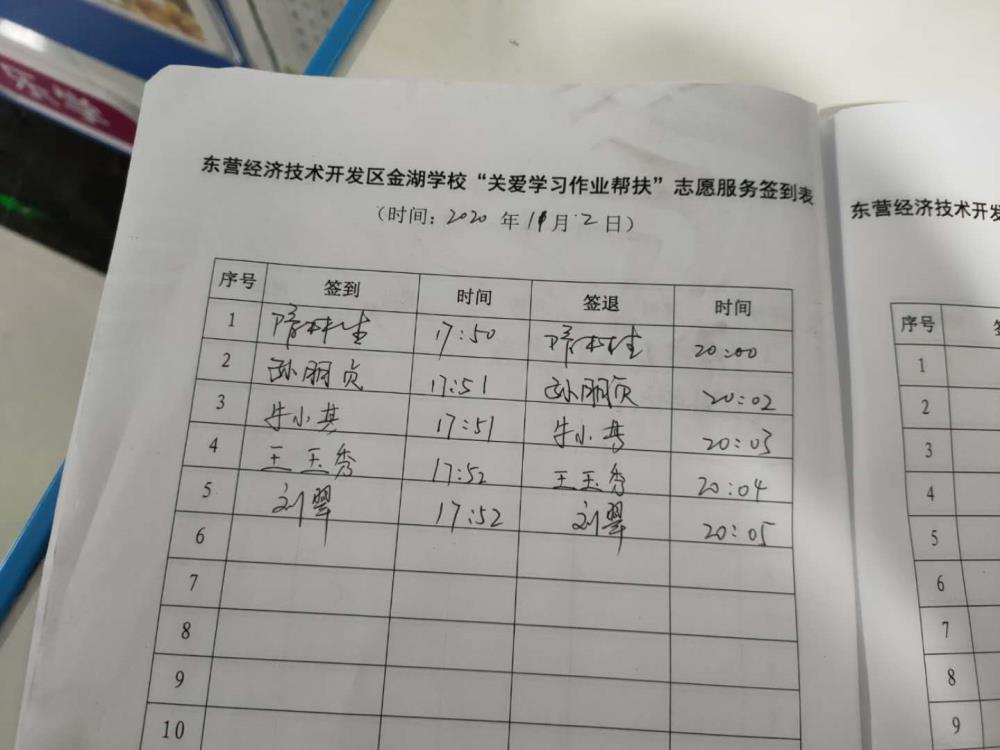 东营经济技术开发区金湖学校“关爱学习作业帮扶”志愿服务签到表
（时间：2020 年 11月 2日）
序号 签到 时间 签退 时间
1 隋林生 17:50 隋林生 20:00
2 孙丽贞 17:51 孙丽贞 20:02
3 牛小燕 17:51 牛小燕 20:03
4 王玉秀 17:52 王玉秀 20:04
5 刘翠 17:52 刘翠 20:05
6
7
8
9
10
东营经济技术开发
序号
1
2
3
4
5
6
7
8
9